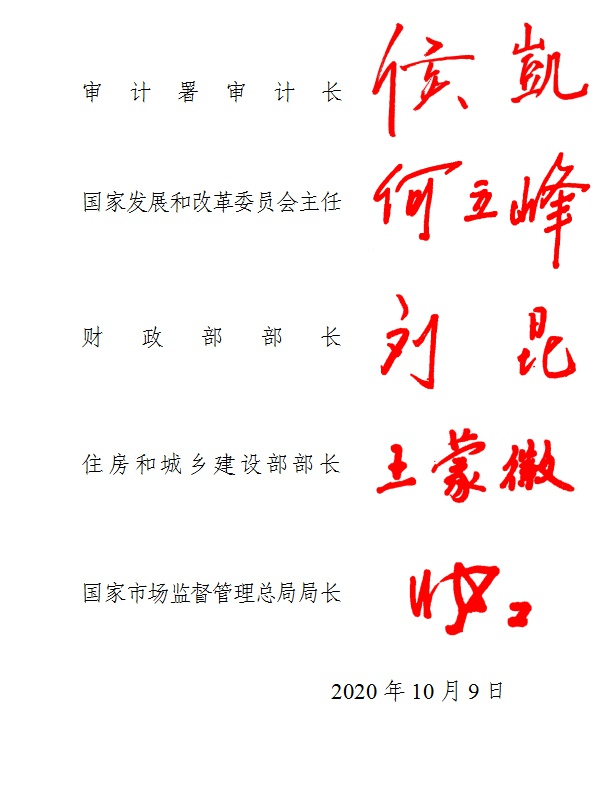 审计署审计长 侯凯
国家发展和改革委员会主任 何立峰
财政部部长 刘昆
住房和城乡建设部部长 王蒙徽
国家市场监督管理总局局长
2020年10月9日